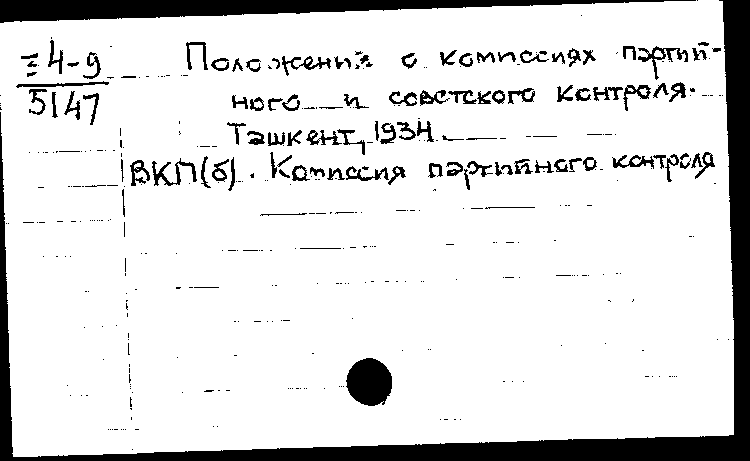 4-9
5147
Положения о комиссиях партий-
ного и советского контроля.
Ташкент, 1934.
ВКП(б). Комиссия партийного контроля